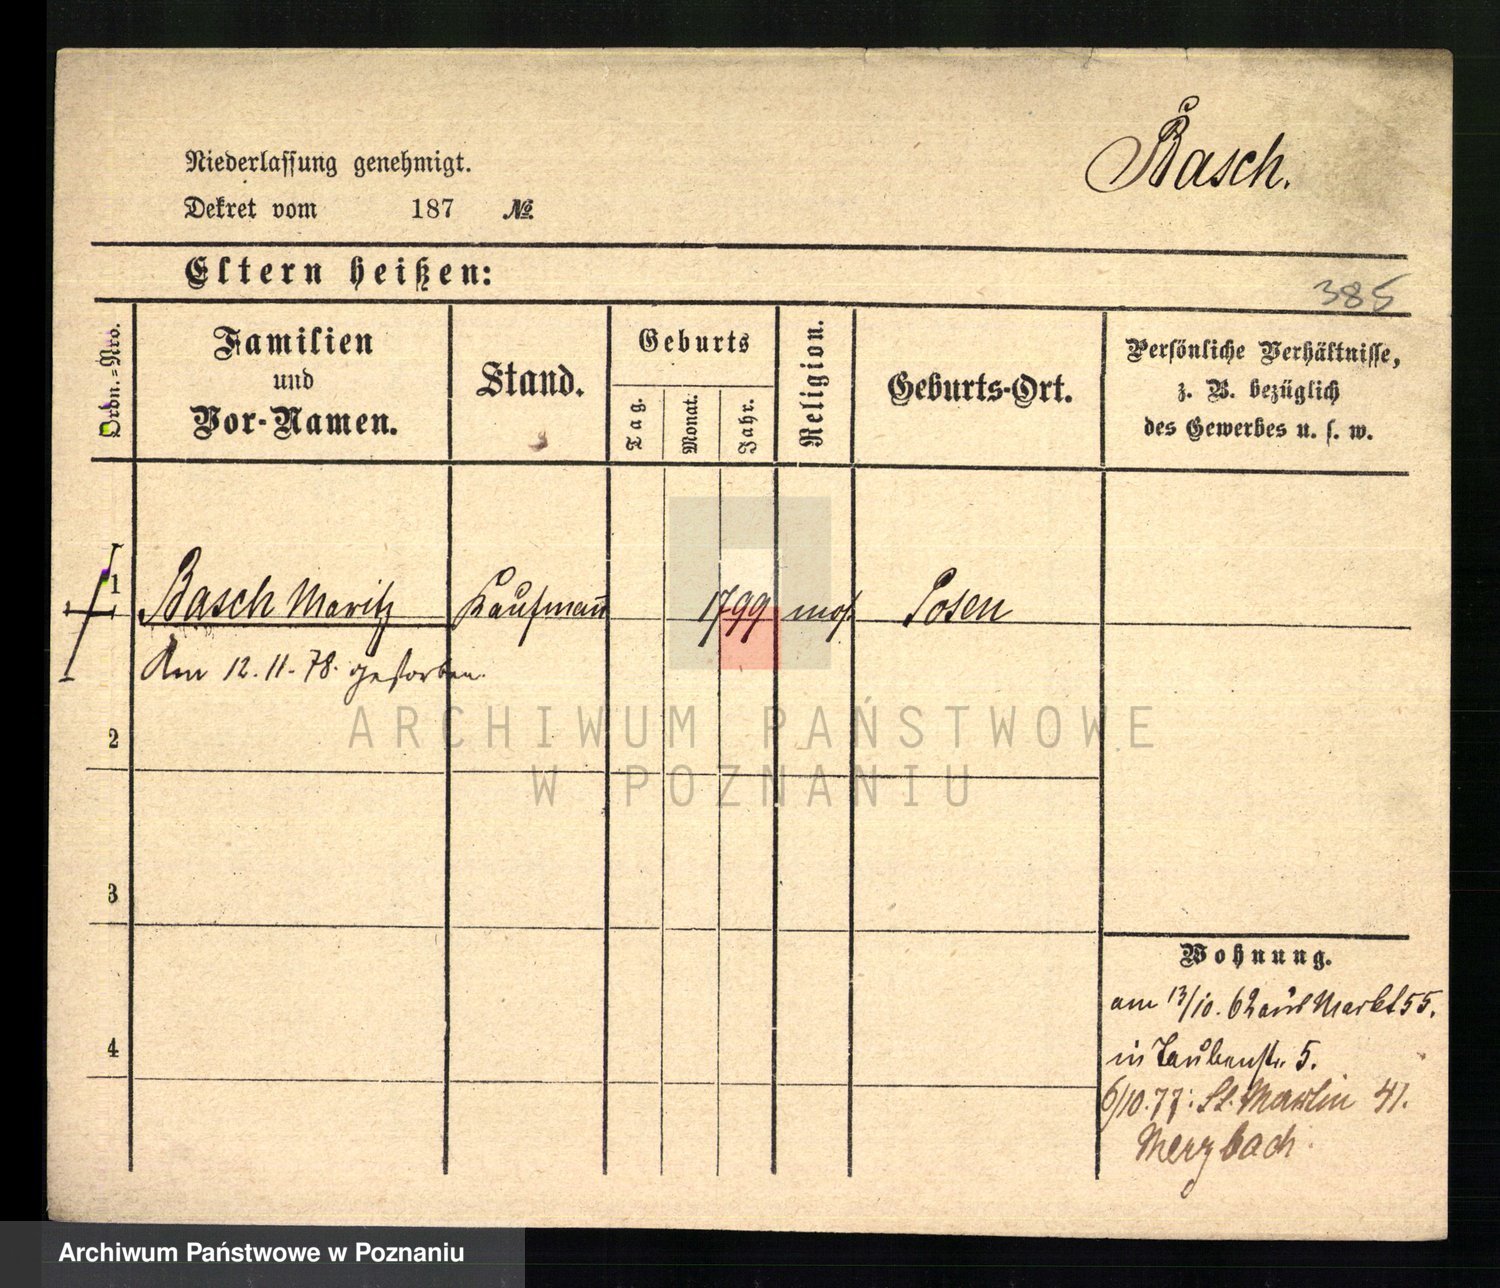 Basch.
Niederlassung genehmigt.
Dekret vom 187 №
Eltern heißen:
385
Ordn.-Nro.
Familien
und
Vor-Namen.
Stand.
Geburts
Tag.
Monat.
Jahr.
Religion.
Geburts-Ort.
Persönliche Verhältnisse,
z. B. bezüglich
des Gewerbes u. s. w.
1 Basch Moritz Kaufmann 1799 mos. Posen
Am 12.11.78. gestorben.
ARCHIWUM PAŃSTWOWE
W POZNANIU
2
3
4
Wohnung.
am 13/10. 62 aus Markt 55.
in Taubenstr. 5.
6/10.77: St. Martin 41.
Merzbach.
Archiwum Państwowe w Poznaniu